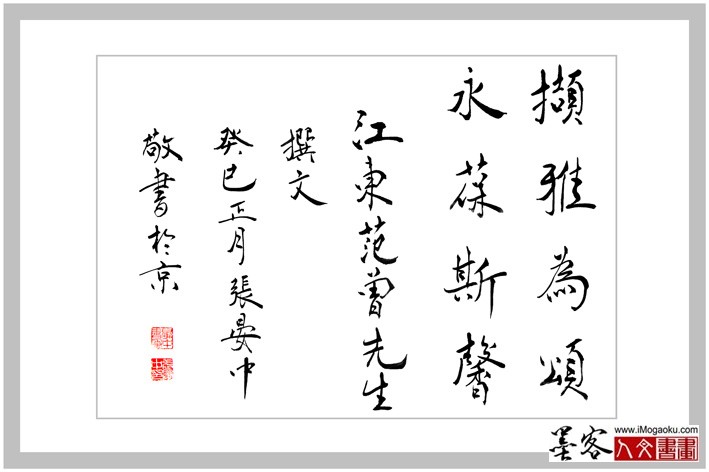 擷雅為頌
永葆斯馨
江東范曾先生
撰文
癸巳正月張晏中
敬書於京
墨客
www.iMogaoku.com
人文書畫